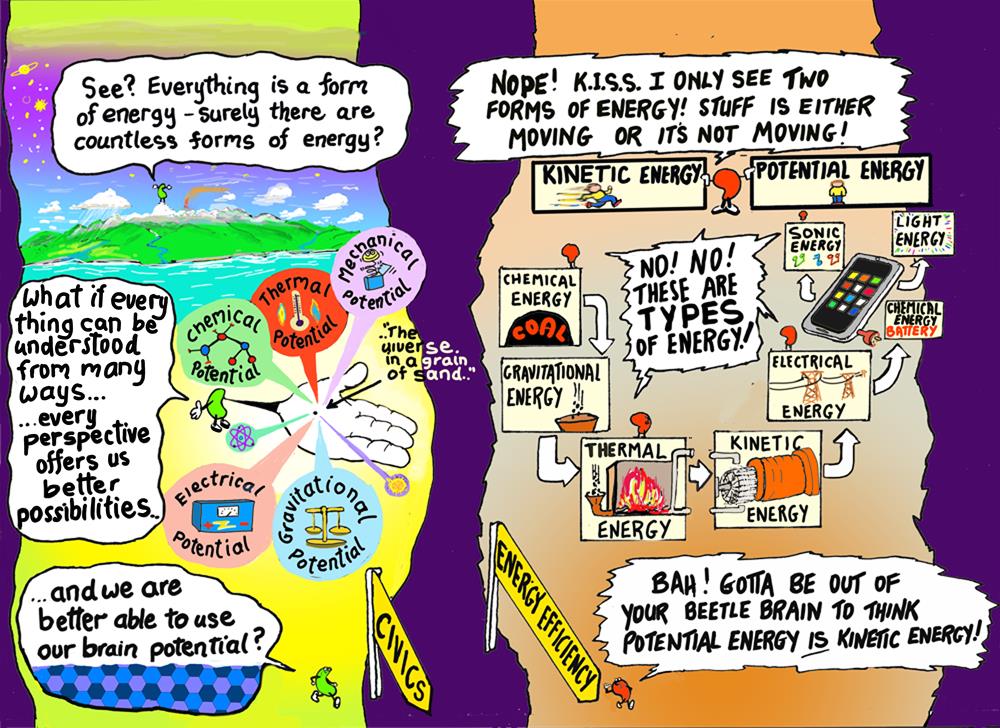 See? Everything is a form
of energy – surely there are
countless forms of energy?
What if every
thing can be
understood
from many
ways...
...every
perspective
offers us
better
possibilities..
Mechanical
Potential
Thermal
Potential
Chemical
Potential
.."The
uiverse.
in a grain
of sand.."
Electrical
Potential
Gravitational
Potential
...and we are
better able to use
our brain potential?
CIVICS
NOPE! K.I.S.S. I ONLY SEE TWO
FORMS OF ENERGY! STUFF IS EITHER
MOVING OR IT'S NOT MOVING!
KINETIC ENERGY
POTENTIAL ENERGY
NO! NO!
THESE ARE
TYPES
OF ENERGY!
CHEMICAL
ENERGY
COAL
GRAVITATIONAL
ENERGY
THERMAL
ENERGY
KINETIC
ENERGY
ELECTRICAL
ENERGY
CHEMICAL
ENERGY
BATTERY
SONIC
ENERGY
LIGHT
ENERGY
ENERGY EFFICIENCY
BAH! GOTTA BE OUT OF
YOUR BEETLE BRAIN TO THINK
POTENTIAL ENERGY IS KINETIC ENERGY!